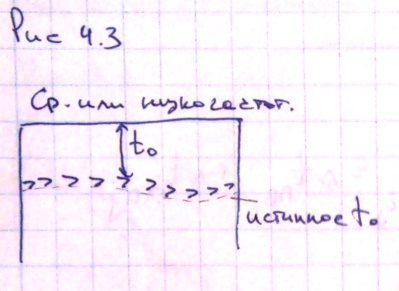 Рис 4.3
Ср. или низкочастот.
t₀
истинное t₀